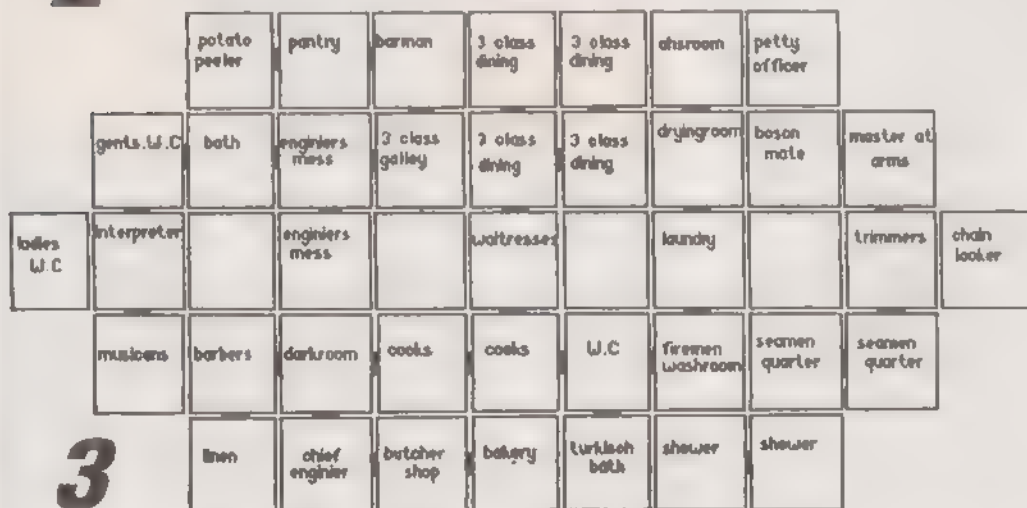 potato
peeler
pantry
barman
3 class
dining
3 class
dining
ahsroom
petty
officer
gents.W.C
bath
enginiers
mess
3 class
galley
3 class
dining
3 class
dining
dryingroom
boson
mate
master at
arms
ladies
W.C
interpreter
enginiers
mess
waitresses
laundry
trimmers
chain
looker
musicens
barbers
darkroom
cooks
cooks
W.C
firemen
washroom
seamen
quarter
seamen
quarter
3
linen
chief
enginier
butcher
shop
bakery
turkisch
bath
shower
shower